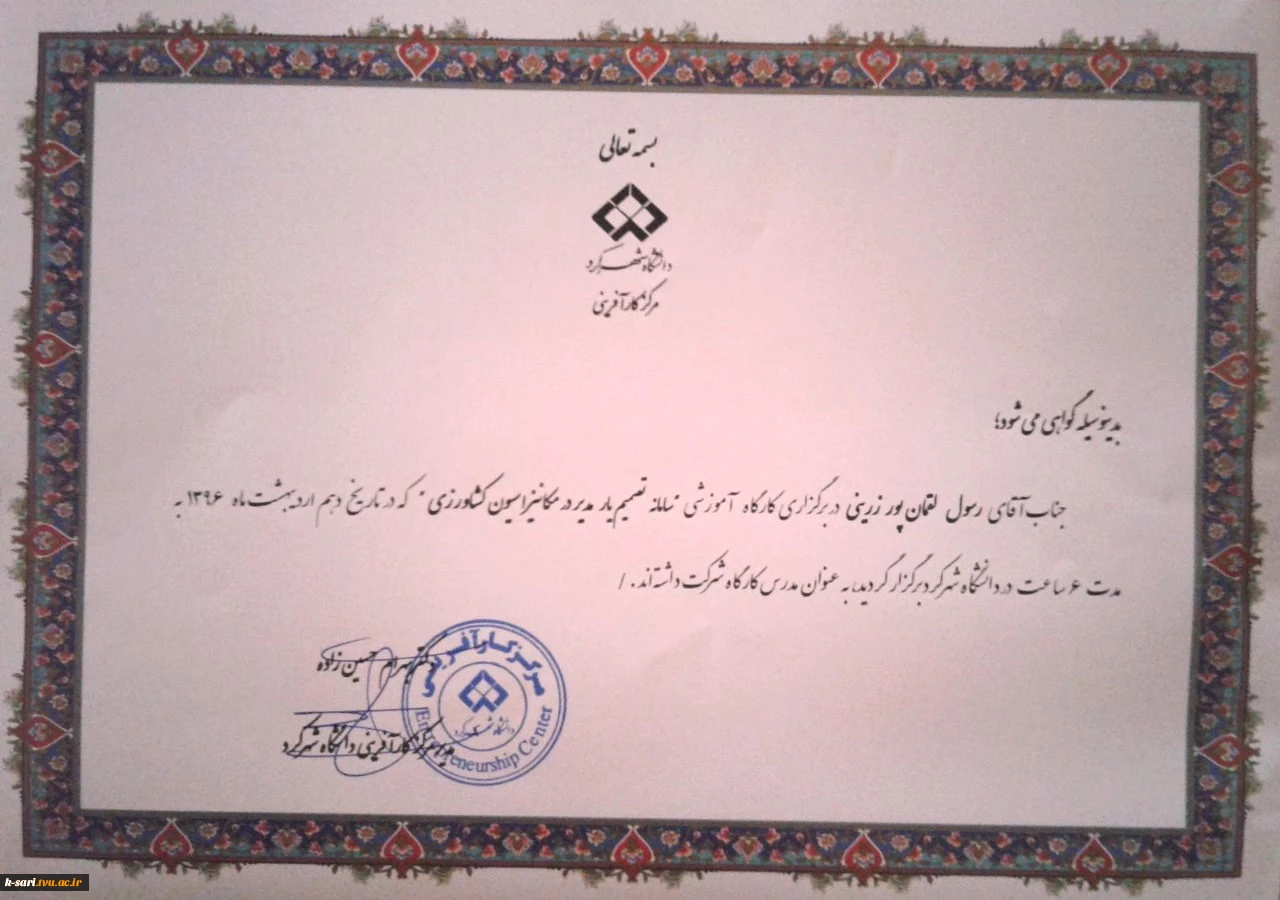 بسمه تعالی
دانشگاه شهرکرد
مرکز کارآفرینی
بدینوسیله گواهی می شود؛
جناب آقای رسول لقمان پور زرینی در برگزاری کارگاه آموزشی "سامانه تصمیم یار مدیر در مکانیزاسیون کشاورزی" که در تاریخ دهم اردیبهشت ماه ۱۳۹۶ به
مدت ۶ ساعت در دانشگاه شهرکرد برگزار گردید، به عنوان مدرس کارگاه شرکت داشته اند. /
دکتر بهرام حسین زاده
مدیر مرکز کارآفرینی دانشگاه شهرکرد
مرکز کارآفرینی
دانشگاه شهرکرد
Entrepreneurship Center
k-sari.tvu.ac.ir